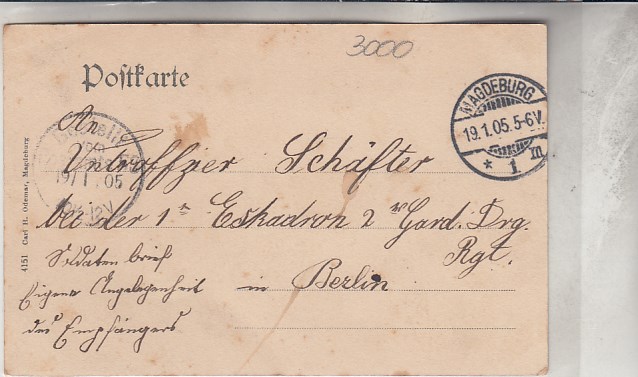 3000
Postkarte
MAGDEBURG
19.1.05.5-6V.
* 1 m
An
Untroffzier Schäfter
bei der 1n Eskadron 2 Gard. Drg.
Rgt.
Soldaten brief
Eigene Angelegenheit in Berlin
des Empfängers
19/1 05
12V
4151 Carl H. Odemar, Magdeburg